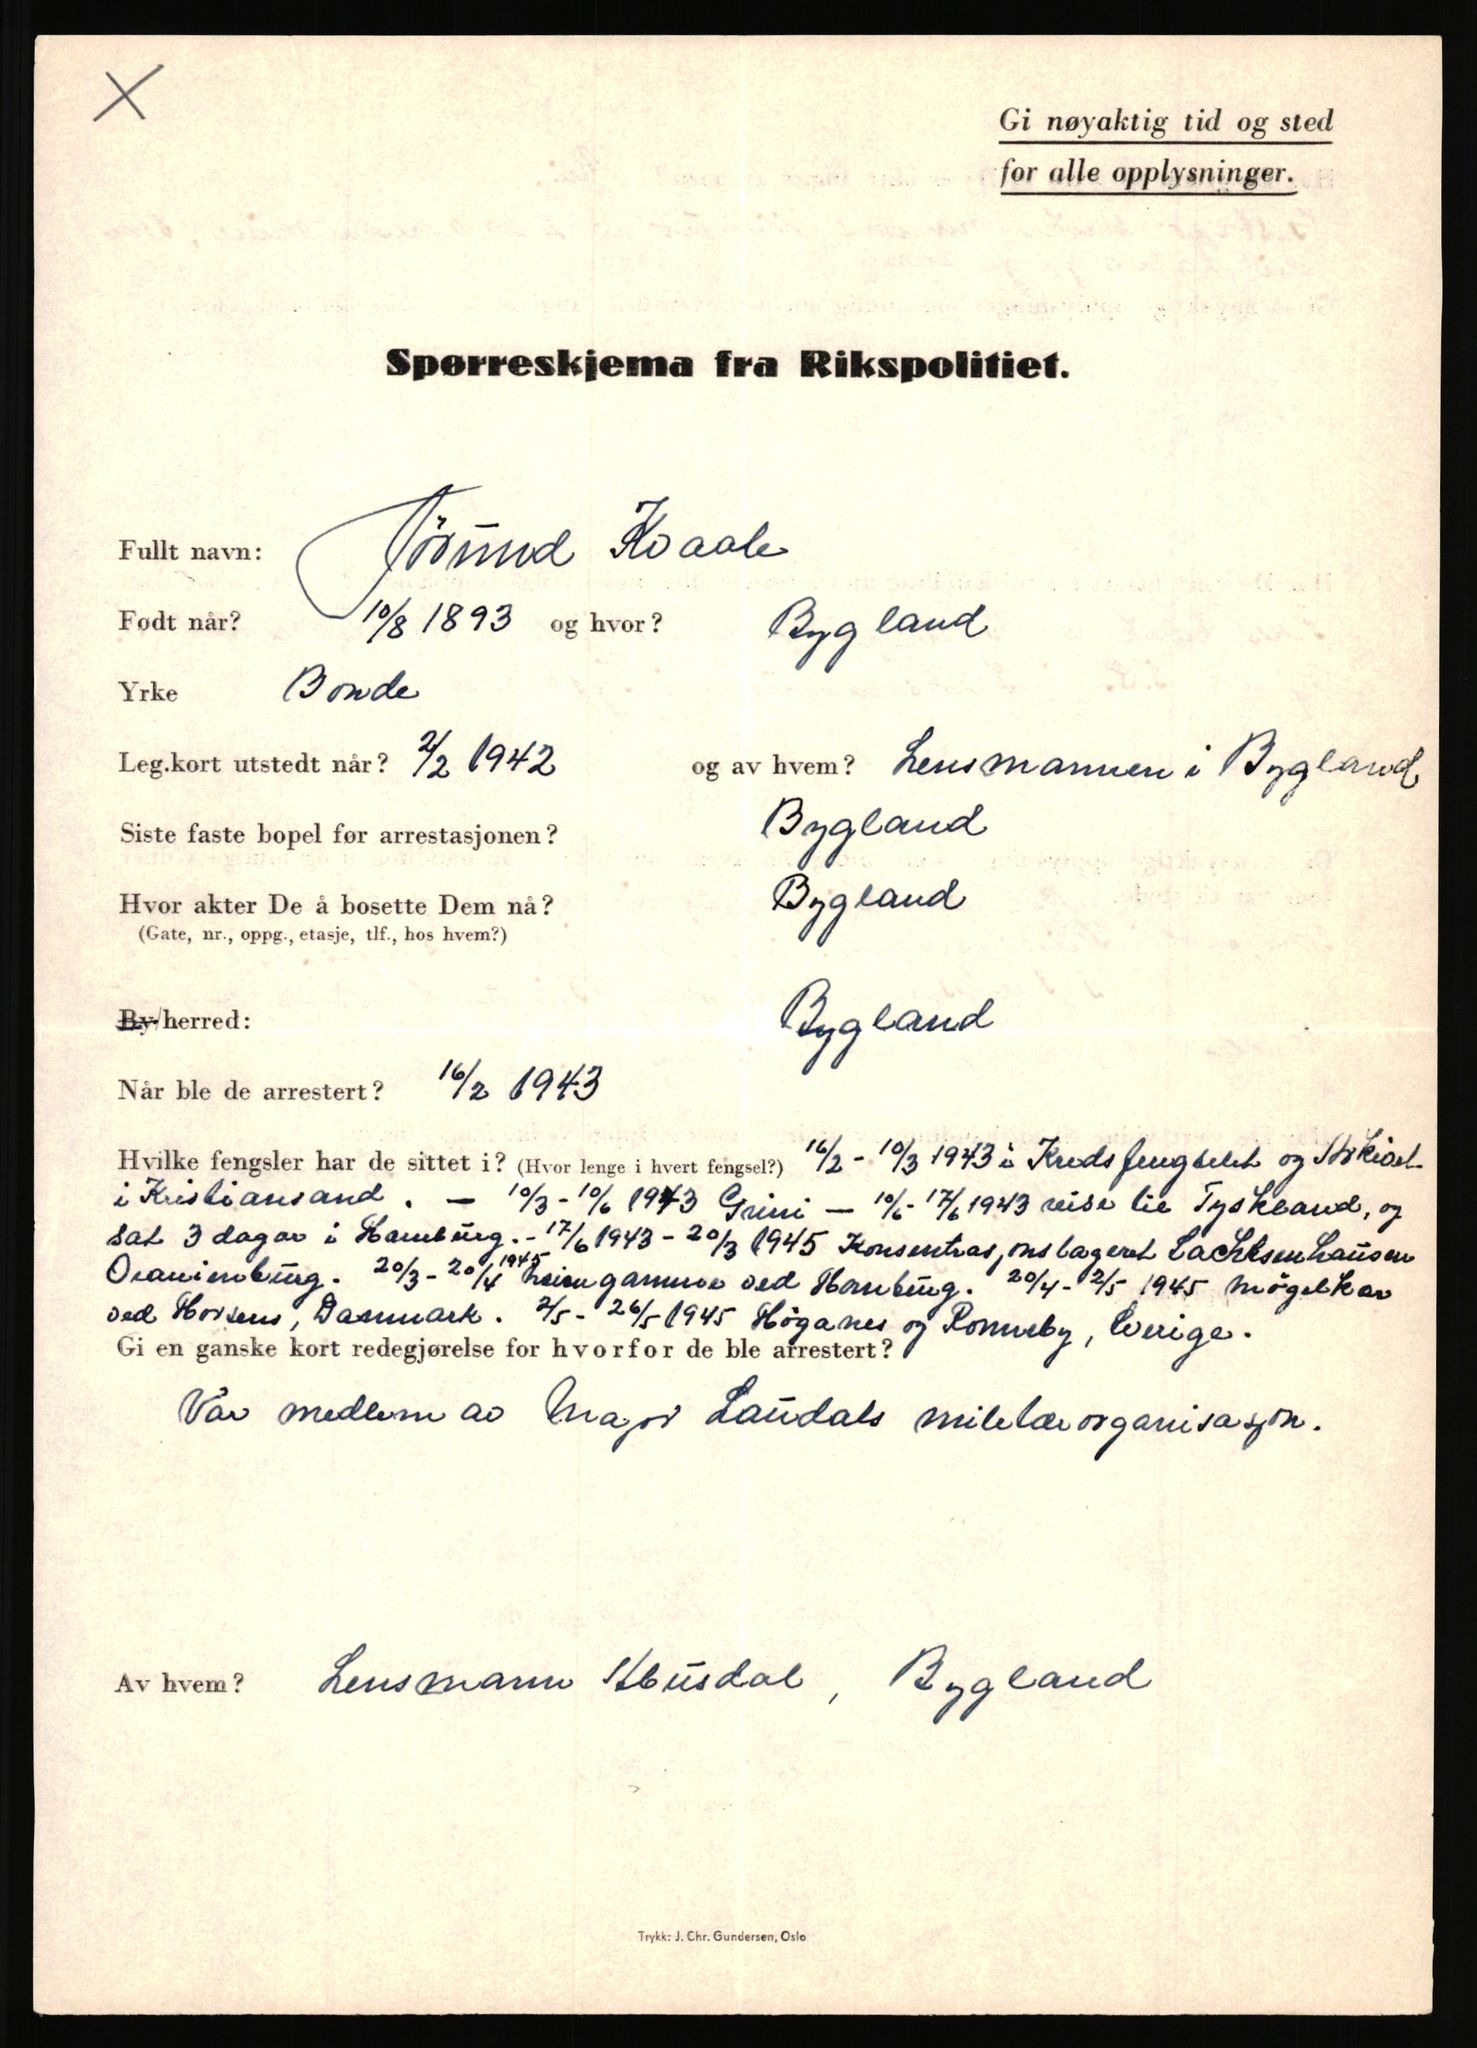 Gi nøyaktig tid og sted
for alle opplysninger.
Spørreskjema fra Rikspolitiet.
Fullt navn: Jörund Kvaale
Født når? 10/8 1893 og hvor? Bygland
Yrke Bonde
Leg.kort utstedt når? 2/2 1942 og av hvem? Lensmannen i Bygland
Siste faste bopel før arrestasjonen? Bygland
Hvor akter De å bosette Dem nå? Bygland
(Gate, nr., oppg., etasje, tlf., hos hvem?)
By/herred: Bygland
Når ble de arrestert? 16/2 1943
Hvilke fengsler har de sittet i? (Hvor lenge i hvert fengsel?) 16/2 - 10/3 1943 i Kredsfengselet og Arkivet
i Kristiansand. — 10/3 - 10/6 1943 Grini — 10/6 - 17/6 1943 reise til Tyskland, og
sat 3 dagar i Hamburg. - 17/6 1943 - 20/3 1945 Konsentrasjonslageret Sachsenhausen
Oranienburg. 20/3 - 20/4 1945 Neiengamme ved Hamburg. 20/4 - 2/5 1945 Møgelkær
ved Horsens, Danmark. 2/5 - 26/5 1945 Høganes og Ronneby, Sverige.
Gi en ganske kort redegjørelse for hvorfor de ble arrestert?
Var medlem av Major Laudals militærorganisasjon.
Av hvem? Lensmann Husdal, Bygland
Trykk: J. Chr. Gundersen, Oslo